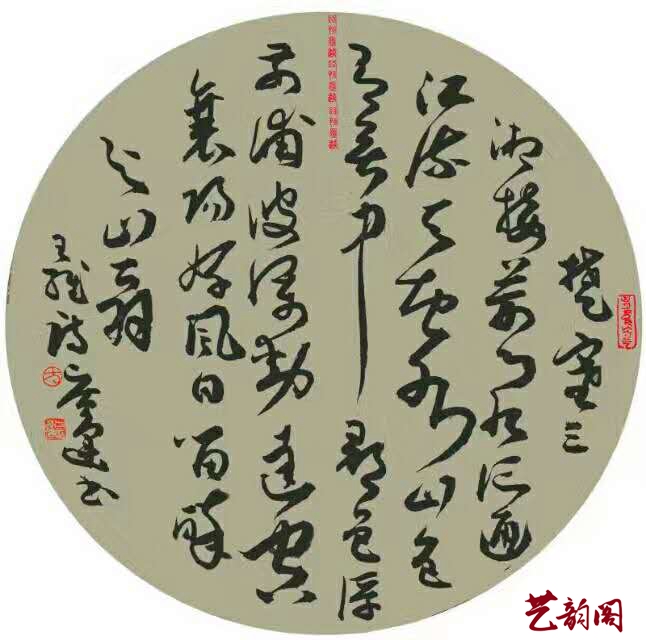 楚塞三
湘接荆门九派通
江流天地外山色
有无中郡邑浮
前浦波澜动远空
襄阳好风日留醉
与山翁
王维诗 建书
艺韵阁